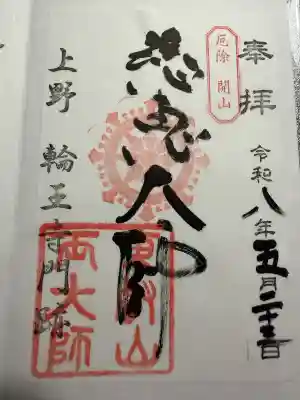 奉拝
令和八年五月二十三日
厄除 開山
慈恵大師
上野 輪王寺門跡
東叡山
両大師